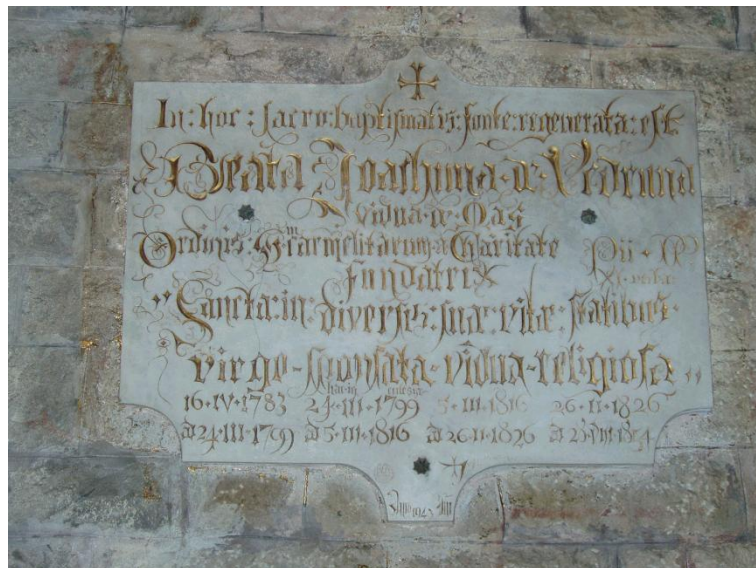 In : hoc : sacro : baptismatis : fonte : regenerata : est
Beata Joachima de Vedruna
Vidua de Mas
Ordinis Carmelitarum a Charitate
Pii PP
XI verba
fundatrix
„Sancta : in : diversis : suæ : vitæ : statibus
virgo - sponsata - vidua - religiosa„
hac in ecclesia
16·IV·1783 24·III·1799 5·III·1816 26·II·1826
ad 24·III·1799 ad 5·III·1816 ad 26·II·1826 ad 23·VIII·1854